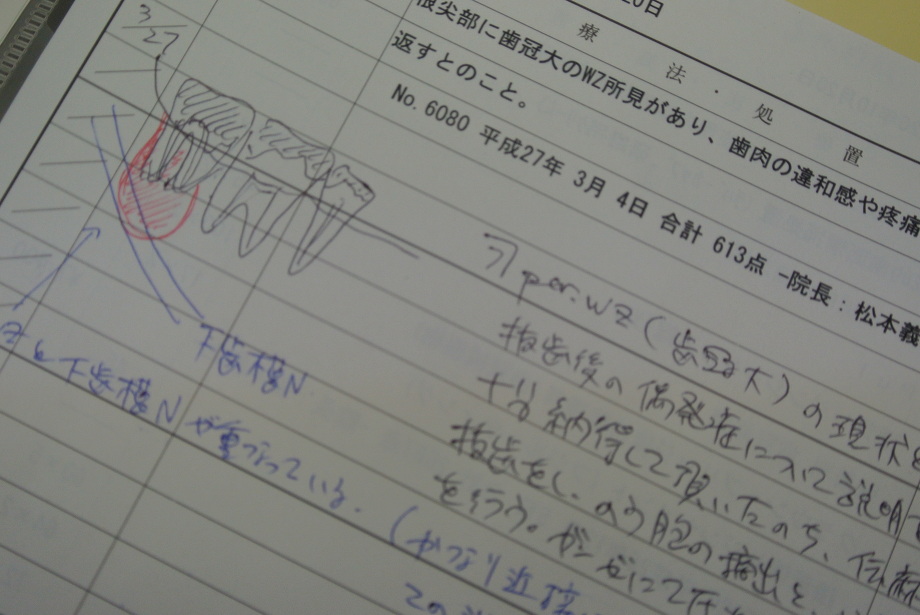 20日
療法・処置
根尖部に歯冠大のWZ所見があり、歯肉の違和感や疼痛
返すとのこと。
No. 6080 平成27年 3月 4日 合計 613点 -院長：松本義
3/27
per.WZ(歯冠大)の現状と
抜歯後の偶発症について説明
十分納得して頂いたのち、伝麻
抜歯をし、のう胞の摘出と
を行う。ガーゼにて圧
下歯槽N
と下歯槽Nが重なっている。
(かなり近接